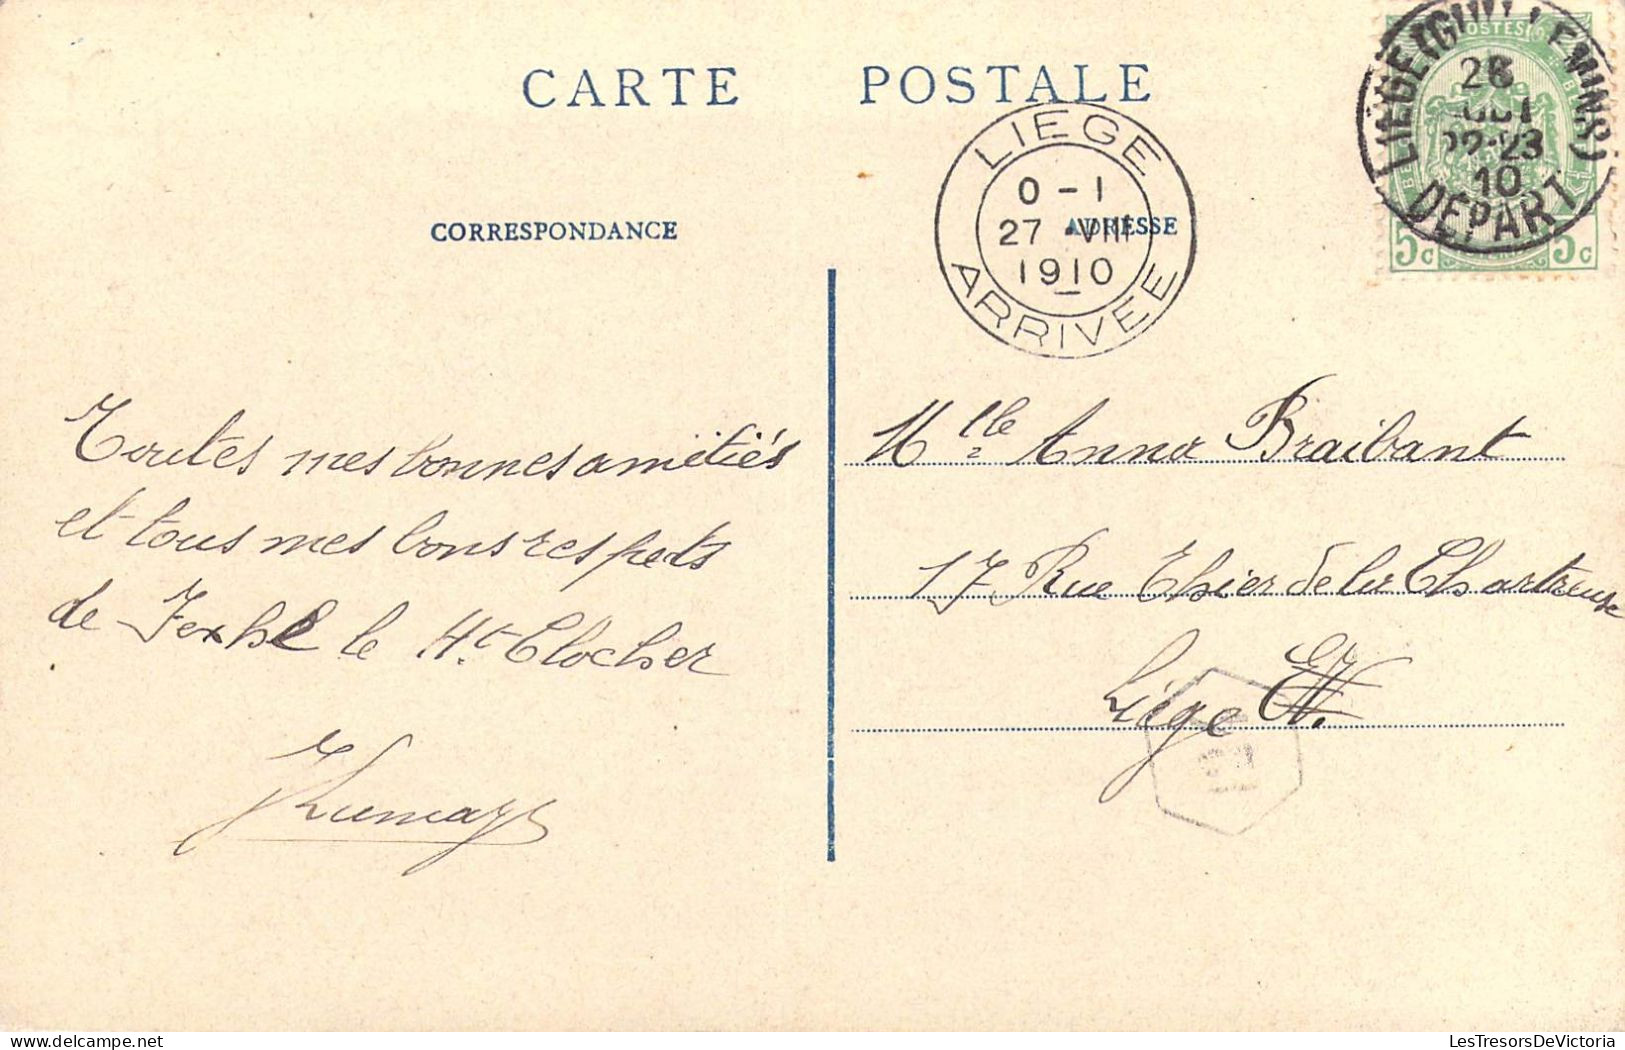 CARTE POSTALE
LIEGE (GUILLEMINS)
26
22-23
10
DEPART
POSTES
5c 5c
LIEGE
0-1
27 VIII
1910
ARRIVEE
CORRESPONDANCE
ADRESSE
Toutes mes bonnes amitiés
et tous mes bons respects
de Fexhe le Ht Clocher
Mlle Anna Braibant
17 Rue Thier de la Chartreuse
Liège
LesTresorsDeVictoria
www.delcampe.net